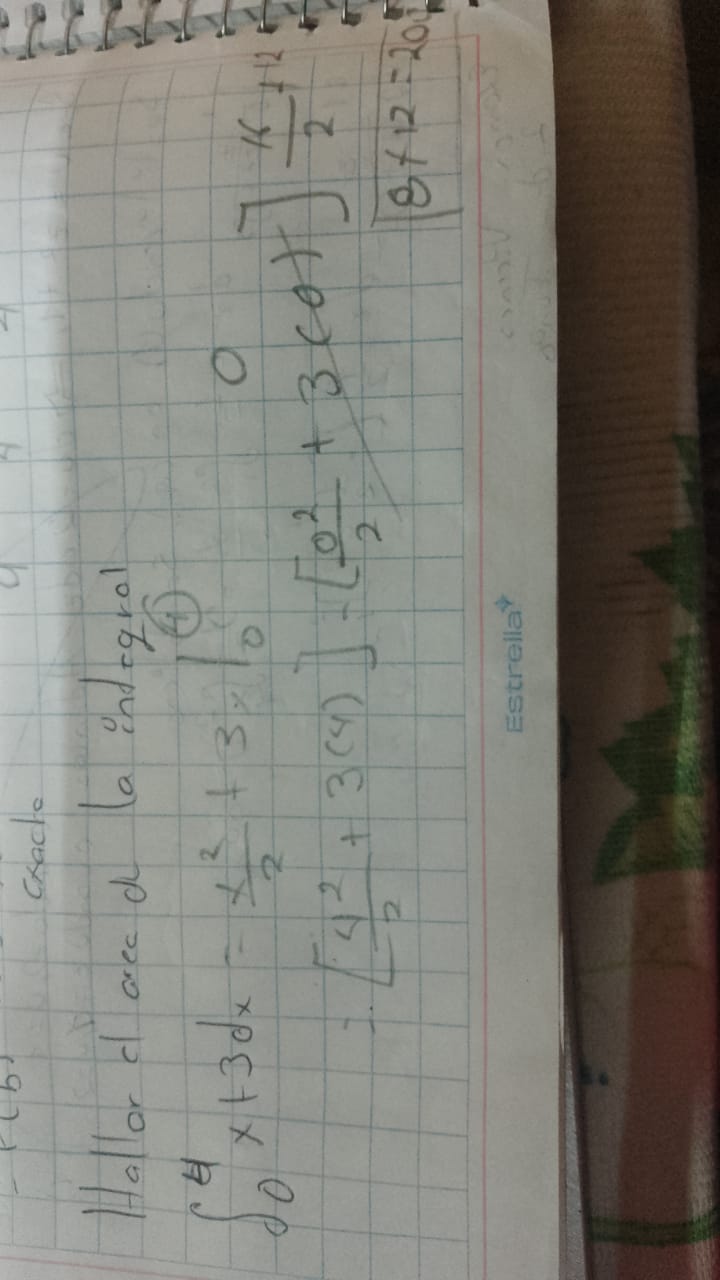 exacto
Hallar el area d la integral
∫₀⁴ x+3dx = x²/2 + 3x |₀⁴ 0
= [4²/2 + 3(4)] - [0²/2 + 3(0)] 16/2 +12
8+12=20
Estrella